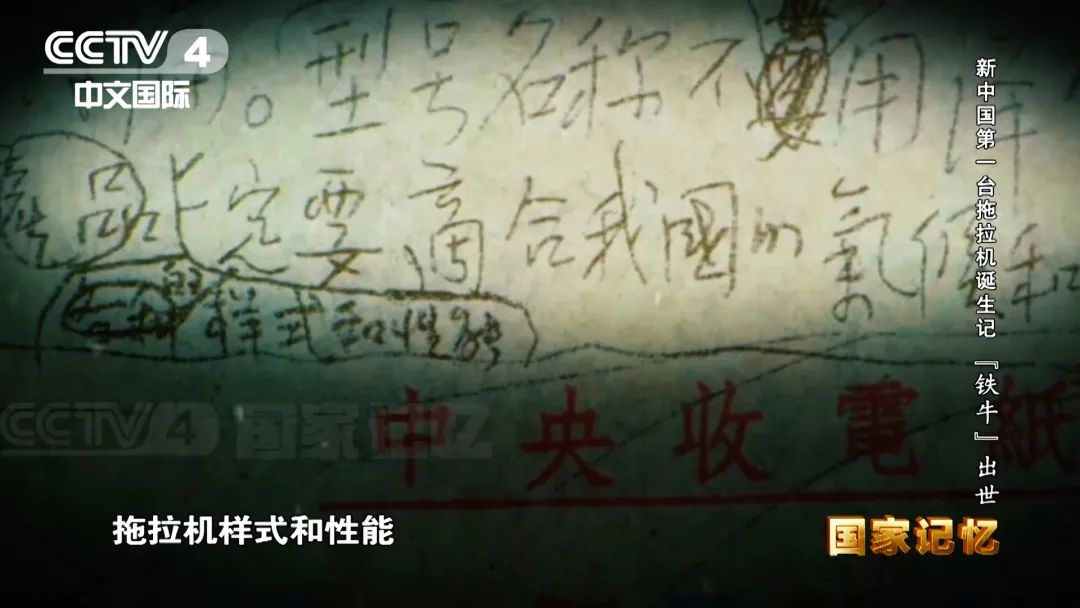 CCTV 4
中文国际
。型号名称不用
品一定要適合我國的氣候和
的样式和性能
新中国第一台拖拉机诞生记 『铁牛』出世
CCTV 4 国家记忆
中央收電紙
拖拉机样式和性能
国家记忆